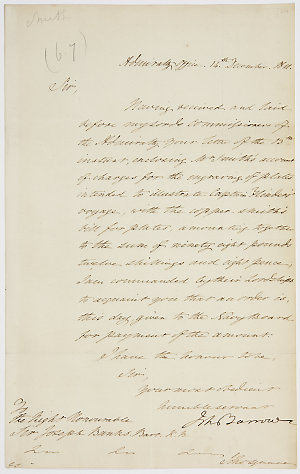 Smith
(67)
Admiralty Office 14th December 1811.
Sir,
Having received and laid
before my Lords Commissioners of
the Admiralty your letter of the 13th
instant, enclosing Mr. Smith's account
of charges for the engraving of plates
intended to illustrate Captain Flinders's
voyage, with the copper smith's
bill for plates, amounting together
to the sum of ninety eight pounds
twelve shillings and eight pence,
I am commanded by their Lordships
to acquaint you that an order is
this day given to the Navy Board
for payment of the amount.
I have the honour to be,
Sir,
Your most obedient
humble servant
John Barrow
To
The Right Honourable
Sir Joseph Banks, Baro. K.B.